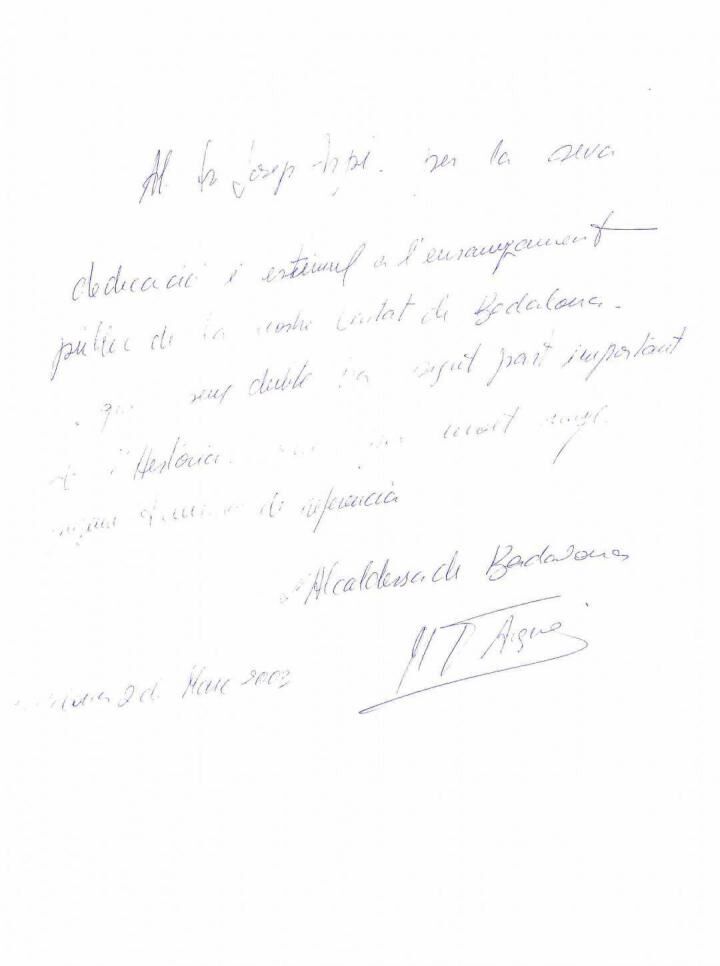 Al Sr Josep per la seva
dedicació i estimul a l'ensenyament
públic de la nostre ciutat de Badalona.
que sens dubte ha sigut part important
de l'Història. molt
de referencia
l'Alcaldessa de Badalona
M T Arqué
2 de Març 2003